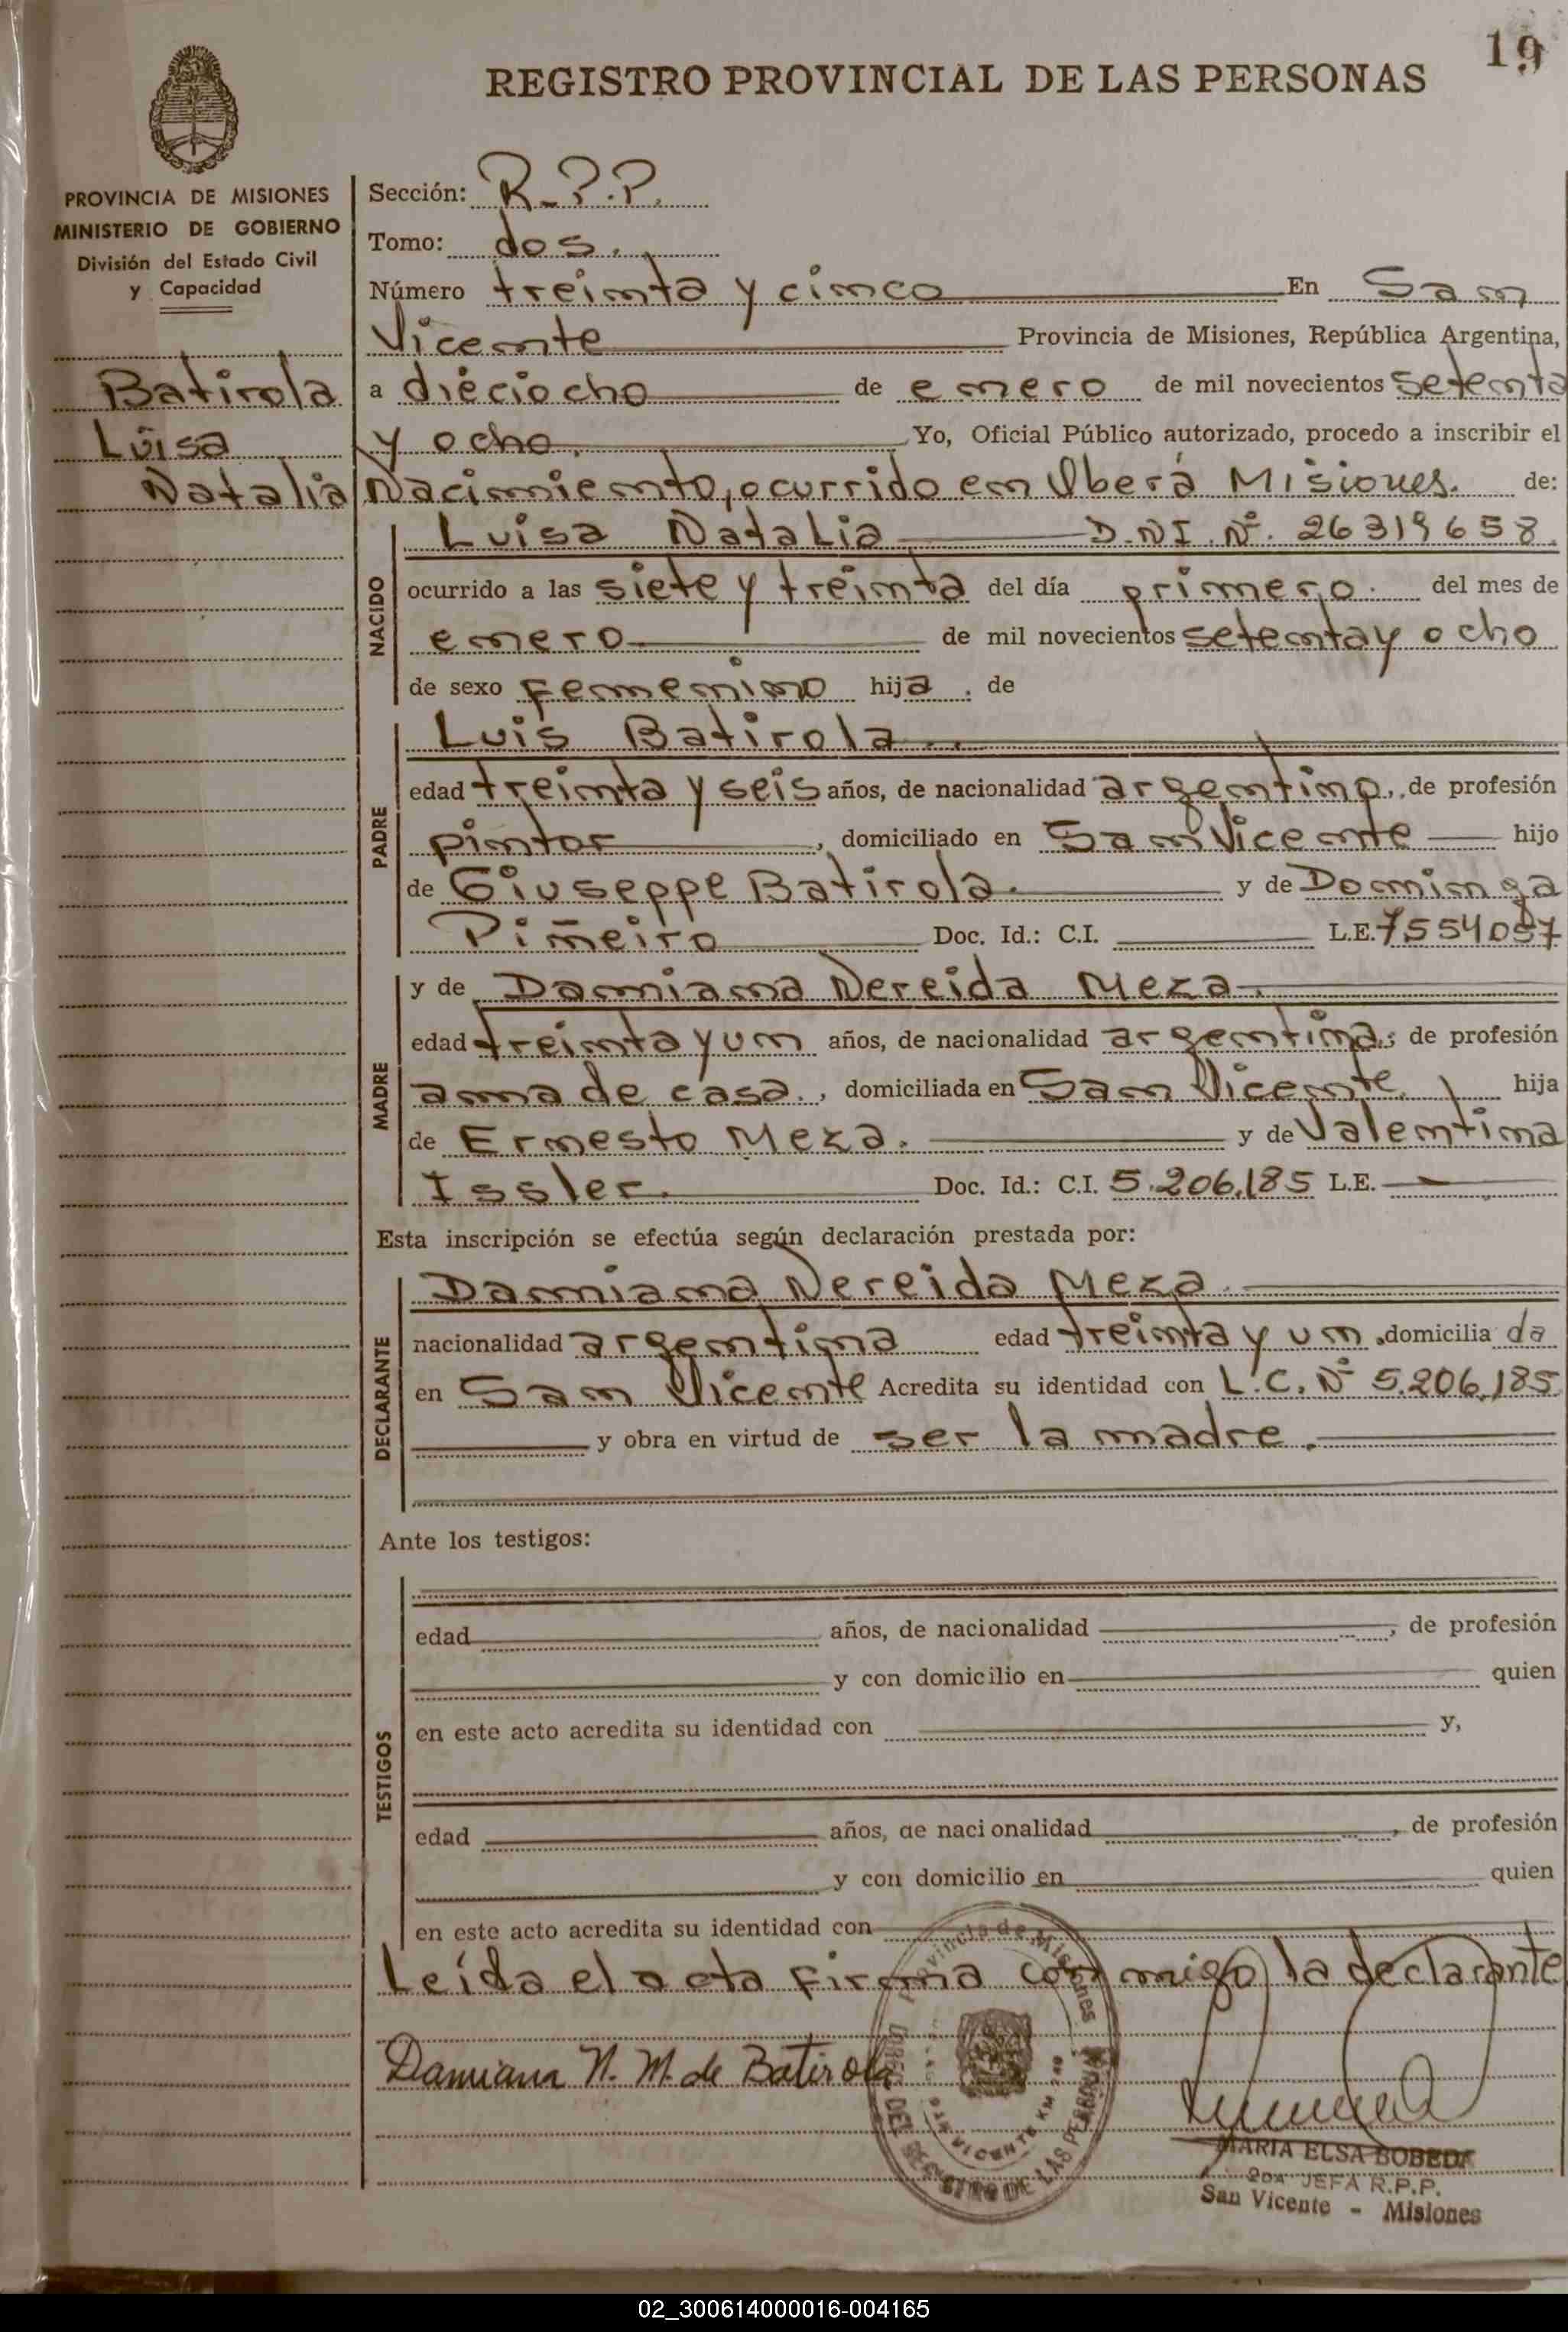 19
REGISTRO PROVINCIAL DE LAS PERSONAS
PROVINCIA DE MISIONES
MINISTERIO DE GOBIERNO
División del Estado Civil
y Capacidad
Batirola
Luisa
Natalia
Sección: R.P.P.
Tomo: dos.
Número treinta y cinco En San
Vicente Provincia de Misiones, República Argentina,
a dieciocho de enero de mil novecientos setenta
y ocho. Yo, Oficial Público autorizado, procedo a inscribir el
Nacimiento, ocurrido en Oberá Misiones. de:
NACIDO
Luisa Natalia D.N.I. Nº. 26319658.
ocurrido a las siete y treinta del día primero. del mes de
enero de mil novecientos setenta y ocho
de sexo femenino hija. de
PADRE
Luis Batirola.
edad treinta y seis años, de nacionalidad argentino, de profesión
pintor, domiciliado en San Vicente hijo
de Giuseppe Batirola. y de Dominga
Piñeiro Doc. Id.: C.I. L.E. 7554057
MADRE
y de Damiana Nereida Meza.
edad treinta y un años, de nacionalidad argentina; de profesión
ama de casa., domiciliada en San Vicente, hija
de Ernesto Meza. y de Valentina
Issler. Doc. Id.: C.I. 5.206.185 L.E. —
Esta inscripción se efectúa según declaración prestada por:
DECLARANTE
Damiana Nereida Meza.
nacionalidad argentina edad treinta y un, domicilia da
en San Vicente Acredita su identidad con L.C. Nº 5.206.185
y obra en virtud de ser la madre.
Ante los testigos:
TESTIGOS
edad años, de nacionalidad , de profesión
y con domicilio en quien
en este acto acredita su identidad con y,
edad años, de nacionalidad , de profesión
y con domicilio en quien
en este acto acredita su identidad con
Leída el acta firma conmigo la declarante
Damiana N. M. de Batirola
Provincia de Misiones
DEL REGISTRO DE LAS PERSONAS
VICENTE KM
MARIA ELSA BOBEDA
2DA JEFA R.P.P.
San Vicente - Misiones
02_300614000016-004165